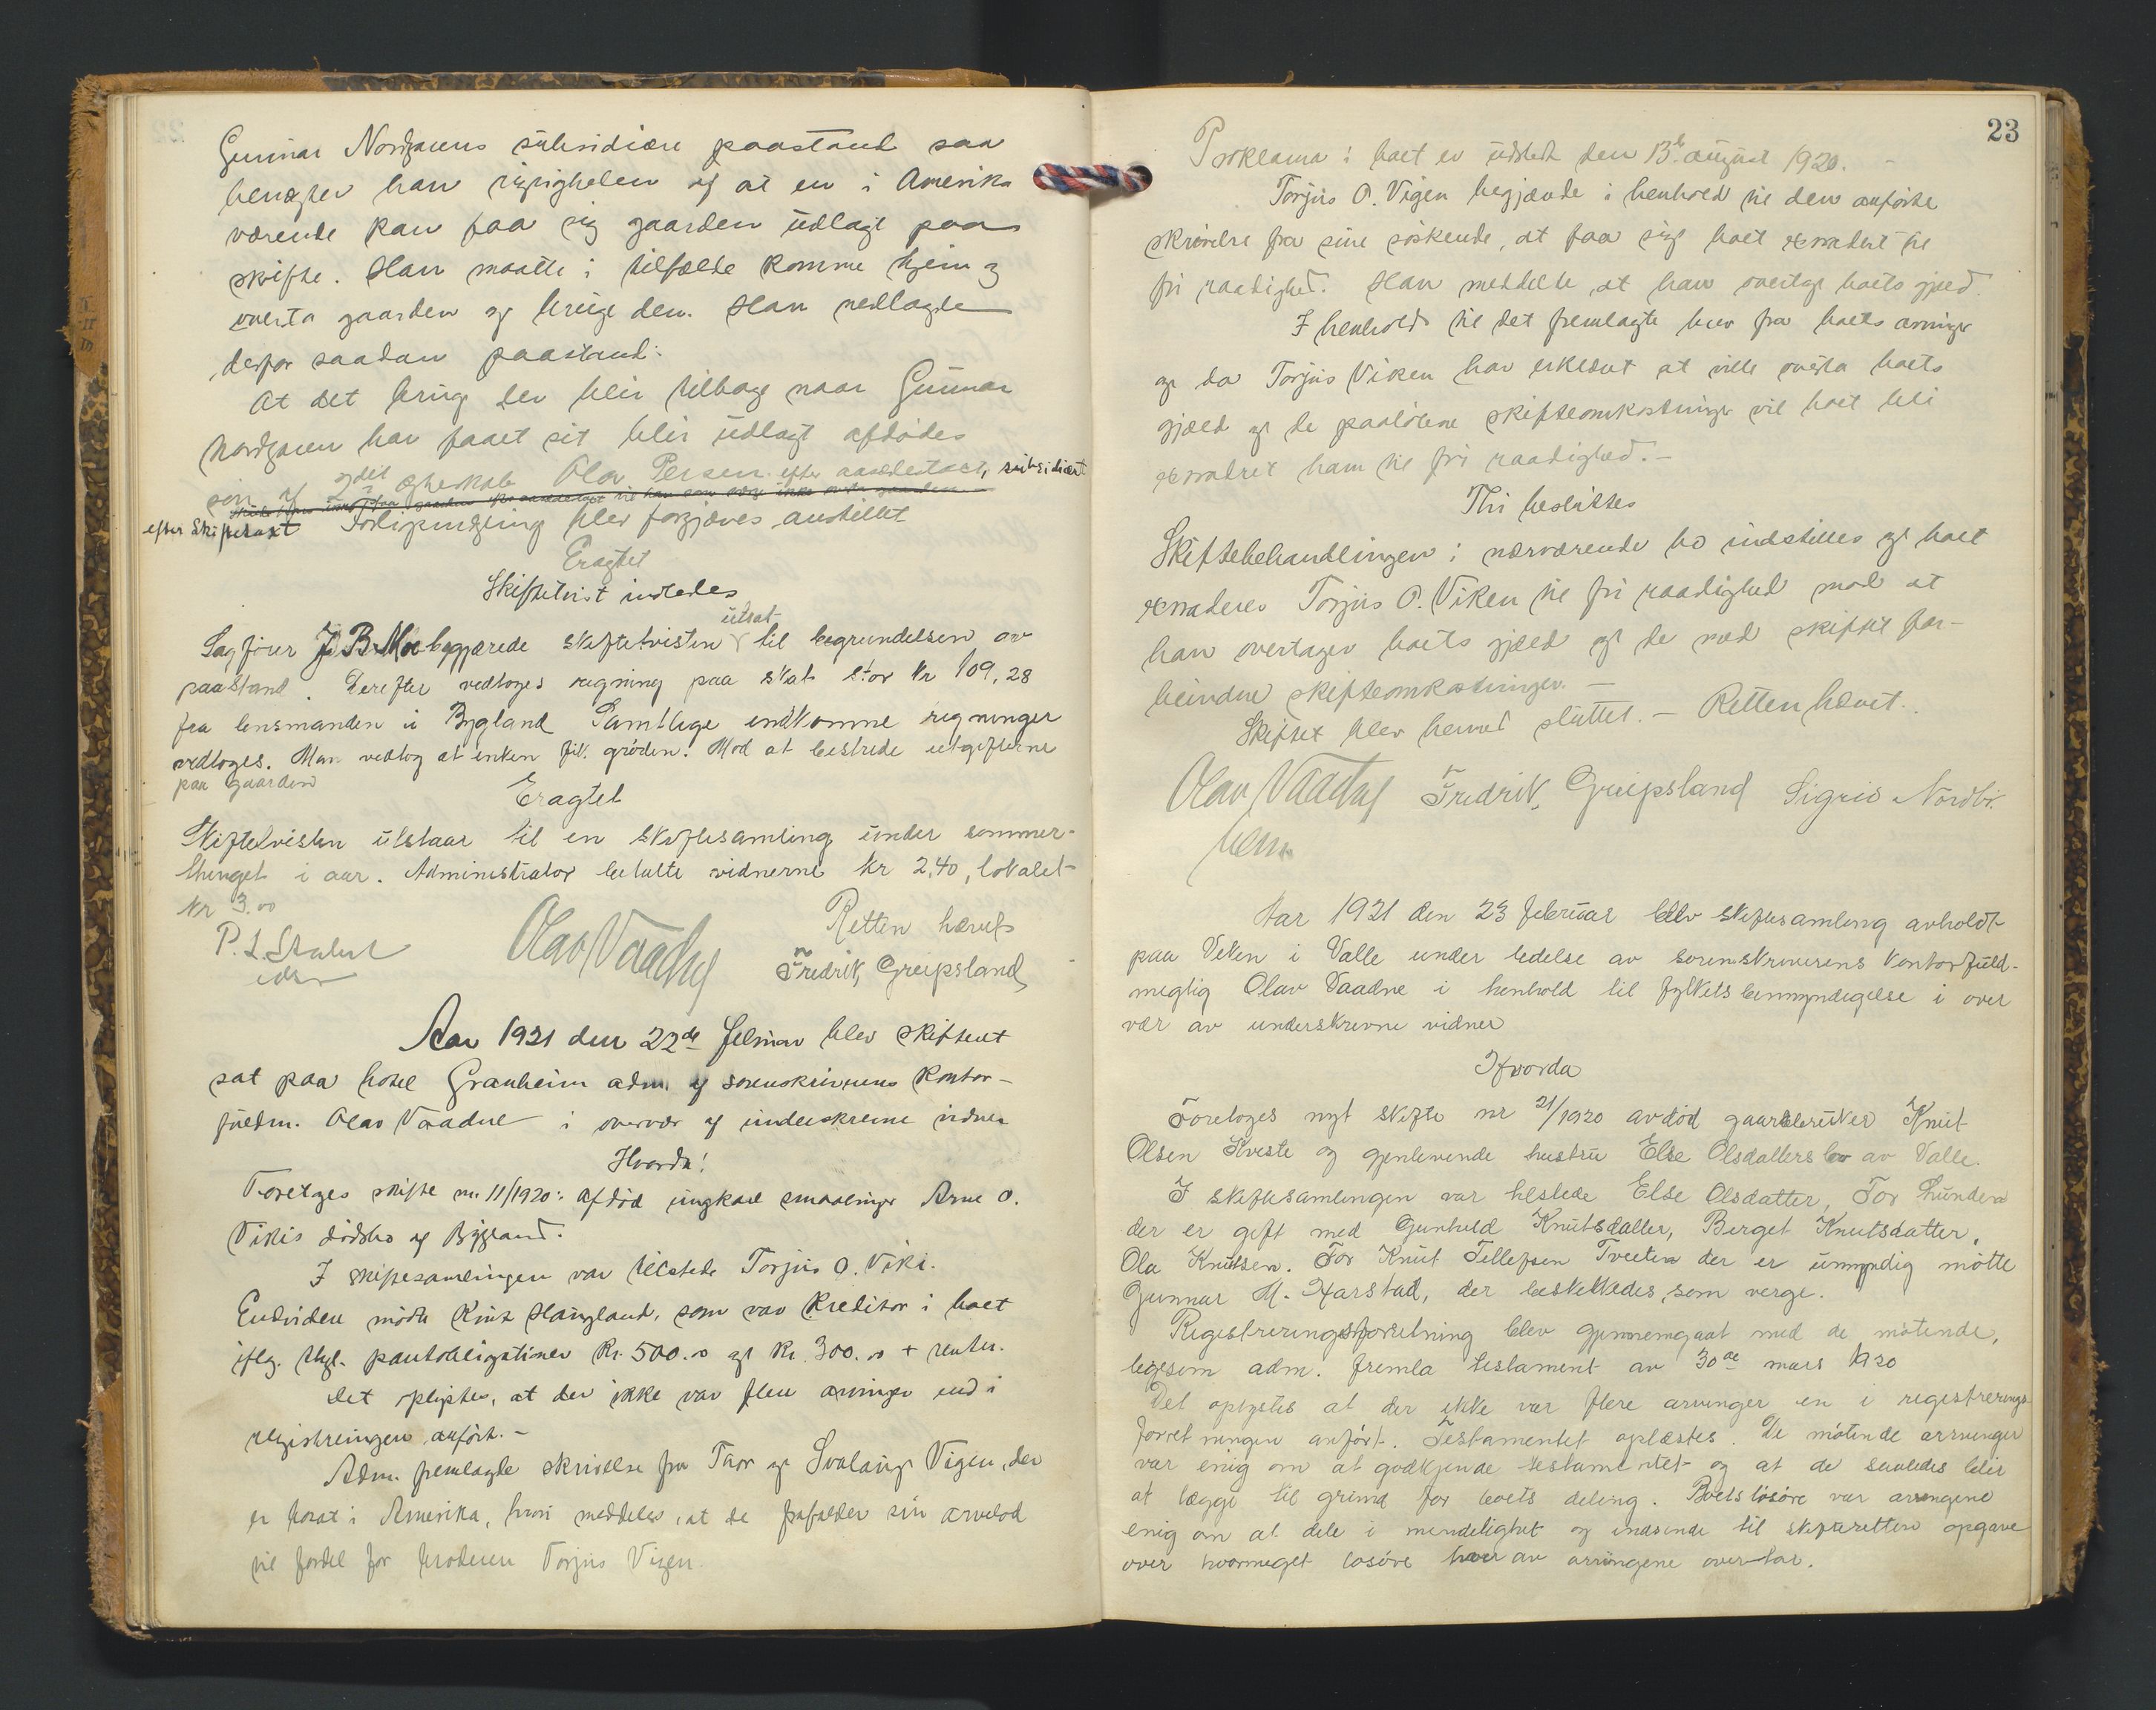 Gunnar Nordgarens subsidiære paastand saa
benægter han rigtigheden af at en i Amerika
værende kan faa sig gaarden udlagt paa
skifte. Han maatte i tilfælde komme hjem og
overta gaarden og bruge den. Han nedlagde
derfor saadan paastand:
At det brug der blir tilbage naar Gunnar
Nordgaren har faaet sit blir udlagt afdødes
søn af 2det egteskab Ola Persen efter aasædestaxt, subsidiært
efter Skiftetaxt Forligsmægling blev forgjæves anstillet
Eragtet
Skiftetvist indledes
Sagfører J B Moe begjærede skiftetvisten utsat til begrundelsen av
paastand. Derefter vedtoges regning paa skat stor kr 109,28
fra lensmanden i Bygland Samtlige indkomne regninger
vedtoges. Man vedtog at enken fik grøden. Mod at bestride utgifterne
paa gaarden
Eragtet
Skiftetvisten utstaar til en skiftesamling under sommer-
thinget i aar. Administrator betalte vidnerne kr 2,40, lokalet
kr 3.00
Retten hævet
Olav Vaadne Fredrik Greipsland
Aar 1921 den 22de februar blev skifteret
sat paa hotel Granheim adm. af sorenskriverens kontor-
fuldm. Olav Vaadne i overvær af underskrevne vidner
Hvorda!
Foretoges skifte nr. 11/1920: afdød ungkarl smaabruger Arne O.
Vikis dødsbo af Bygland.
I skiftesamlingen var tilstede Torjus O. Viki.
Endvidere mødte Knut Haugland, som var kreditor i boet
iflg. thgl. pantobligationer kr. 500.00 og kr. 300.00 + renter.
Det oplystes, at der ikke var flere arvinger end i
registreringen anført. –
Adm. fremlagde skrivelse fra Thor og Svalaug Vigen, der
er bosat i Amerika, hvori meddeles, at de frafalder sin arvelod
til fordel for broderen Torjus Vigen.
23
Proklama i boet er udstedt den 13de august 1920. –
Torjus O. Vigen begjærede i henhold til den anførte
skrivelse fra sine søskende, at faa sig boet extraderet til
fri raadighed. Han meddelte, at han overtog boets gjæld.
I henhold til det fremlagte brev fra boets arvinger
og da Torjus Viken har erklæret at ville overta boets
gjæld og de paaløbne skifteomkostninger vil boet bli
extraderet ham til fri raadighed. –
Thi besluttes
Skiftebehandlingen i nærværende bo indstilles og boet
extraderes Torjus O. Viken til fri raadighed mod at
han overtager boets gjæld og de med skiftet for-
bundne skifteomkostninger. –
Skiftet blev hermed sluttet. – Retten hævet.
Olav Vaadne Fredrik Greipsland Sigrid Nordbø
Aar 1921 den 23 februar blev skiftesamling avholdt
paa Viken i Valle under ledelse av sorenskriverens kontorfuld-
mægtig Olav Vaadne i henhold til fylkets bemyndigelse i over
vær av underskrevne vidner
Hvorda
Foretoges nyt skifte nr 21/1920 avdød gaardbruker Knut
Olsen Kveste og gjenlevende hustru Else Olsdatters bo av Valle.
I skiftesamlingen var tilstede Else Olsdatter, Tor Lunden
der er gift med Gunhild Knutsdatter, Berget Knutsdatter,
Ola Knutsen. For Knut Tellefsen Tveiten der er umyndig møtte
Gunnar M. Harstad, der beskikkedes som verge.
Registreringsforretning blev gjennemgaat med de møtende,
likesom adm. fremla testament av 30de mars 1920
Det oplystes at der ikke var flere arvinger en i registrerings
forretningen anført. Testamentet oplæstes. De møtende arvinger
var enig om at godkjende testamentet og at de saaledes blir
at lægge til grund for boets deling. Boets løsøre var arvingene
enig om at dele i mindelighet og indsende til skifteretten opgave
over hvormeget løsøre hver av arvingene overtar.